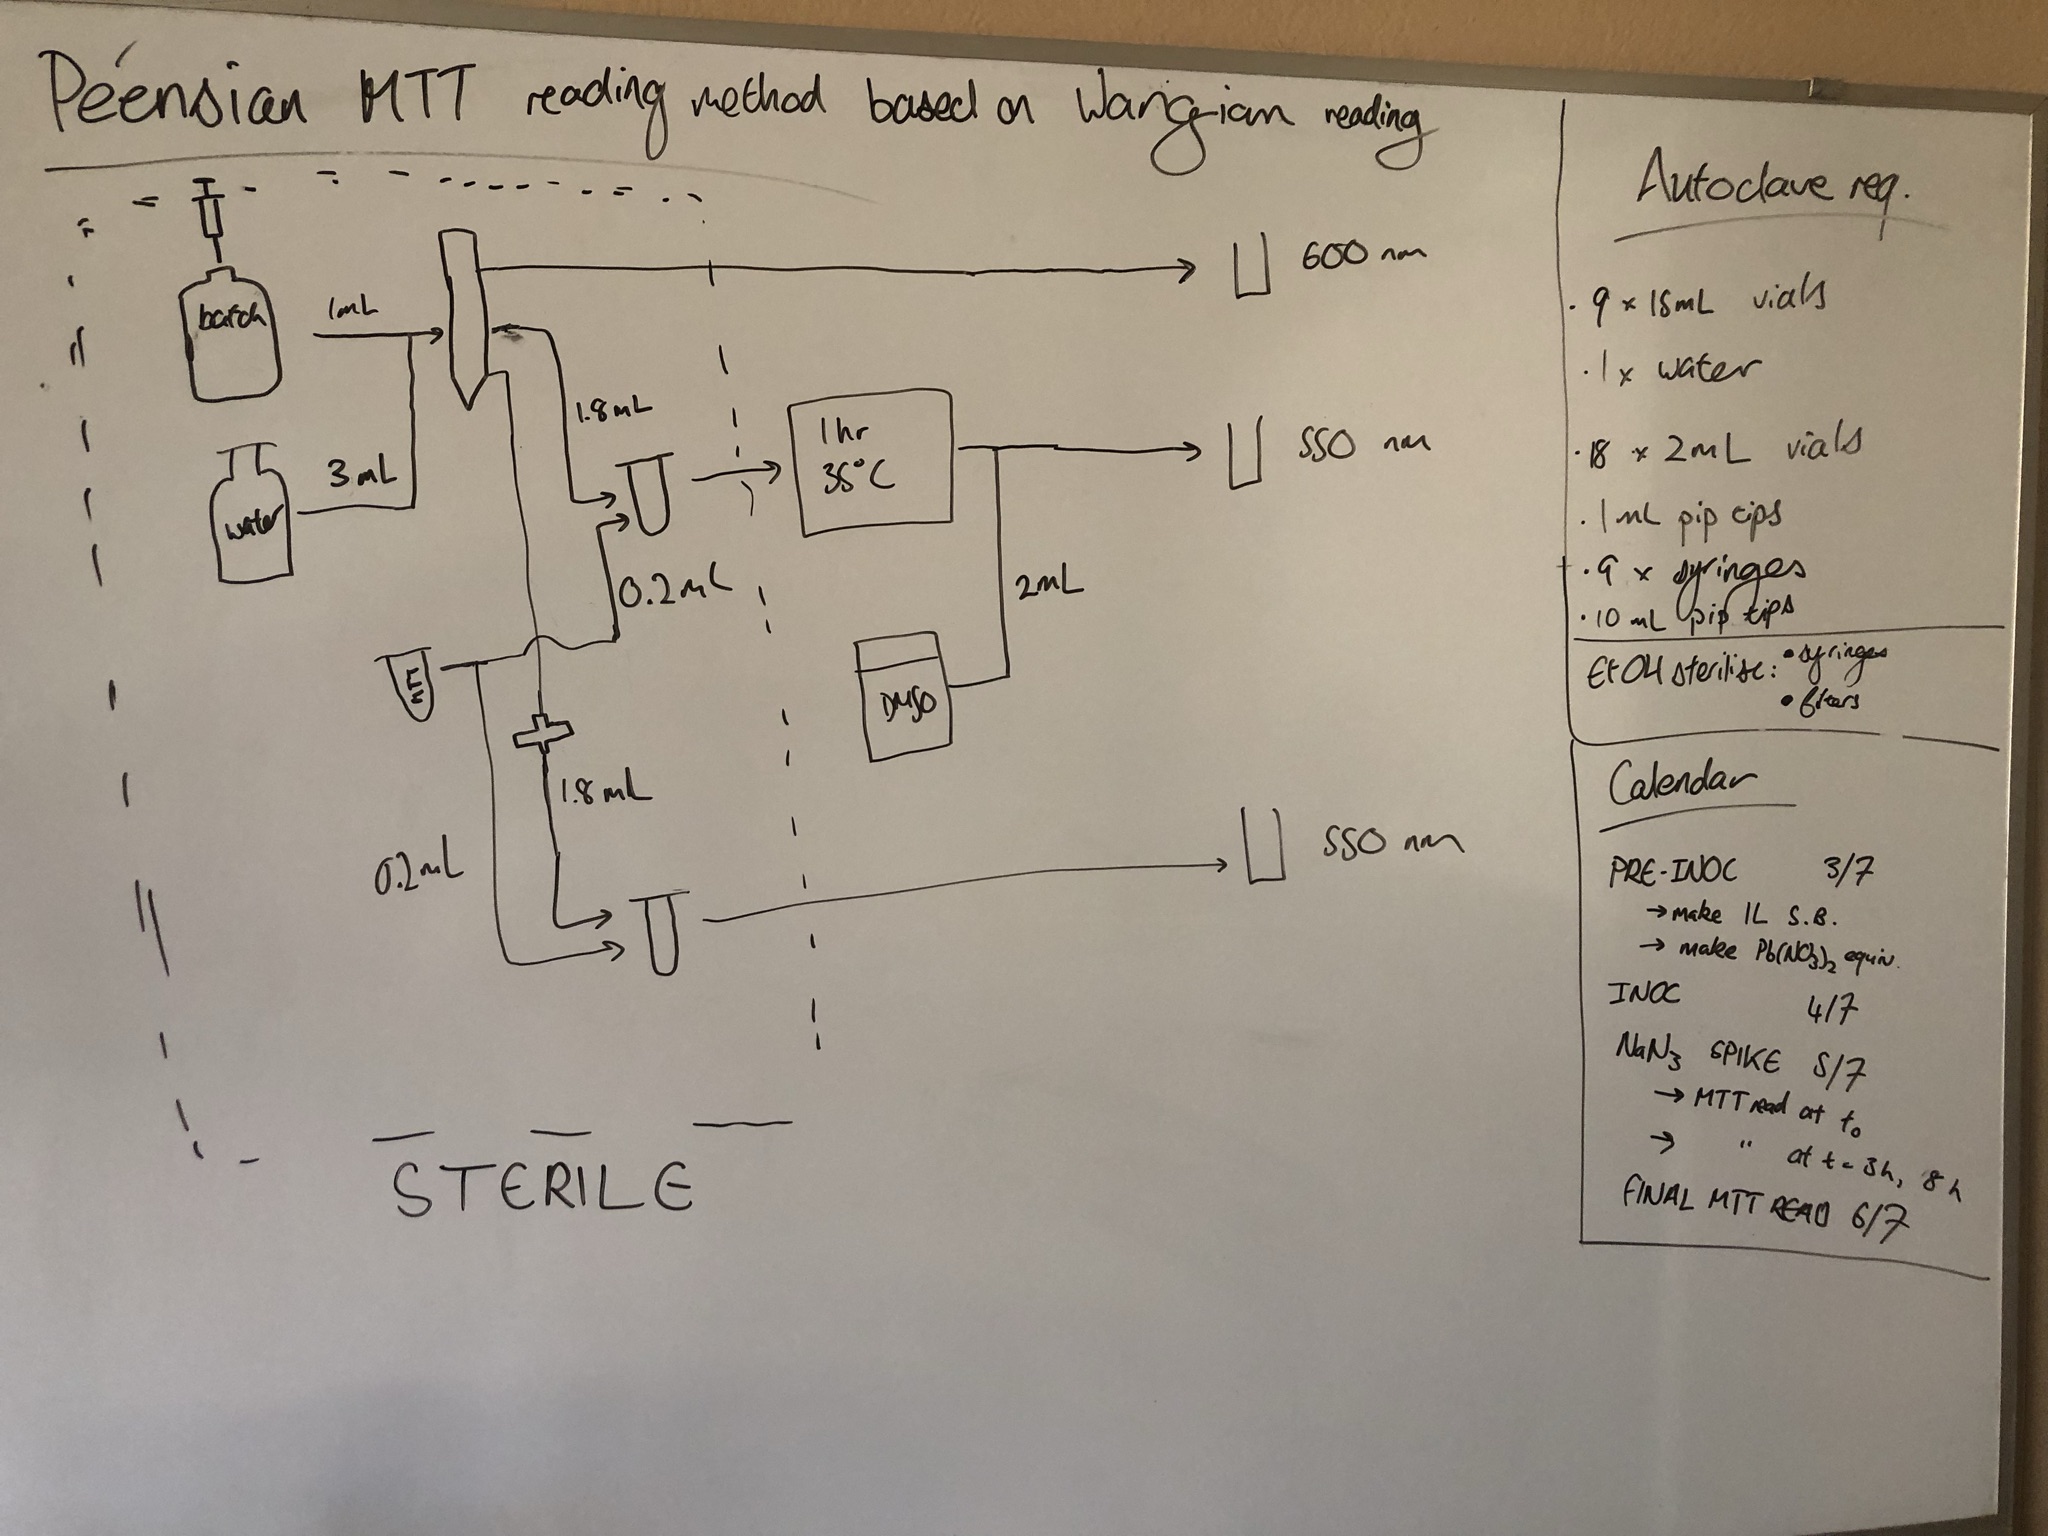 Péensian MTT reading method based on Wangian reading
600 nm
batch
1mL
1.8mL
1hr
35°C
550 nm
3mL
water
0.2mL
2mL
MTT
DMSO
1.8mL
0.2mL
550 nm
STERILE
Autoclave req.
· 9 x 15mL vials
· 1 x water
· 18 x 2mL vials
· 1mL pip tips
· 9 x syringes
· 10 mL pip tips
EtOH sterilise: • syringes
• filters
Calendar
PRE-INOC 3/7
→ make 1L S.B.
→ make Pb(NO3)2 equiv.
INOC 4/7
NaN3 SPIKE 5/7
→ MTT read at t0
→ " at t = 3h, 8h
FINAL MTT READ 6/7